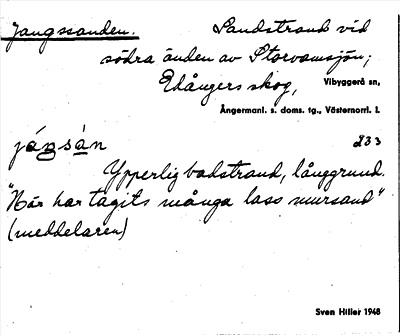 Jangssanden. Sandstrand vid
södra änden av Storvamsjön;
Edångers skog, Vibyggerå sn,
Ångermanl. s. doms. tg., Västernorrl. l.
jáŋsàn 233
Ypperlig badstrand, långgrund.
"Här har tagits många lass mursand"
(meddelaren)
Sven Hiller 1948